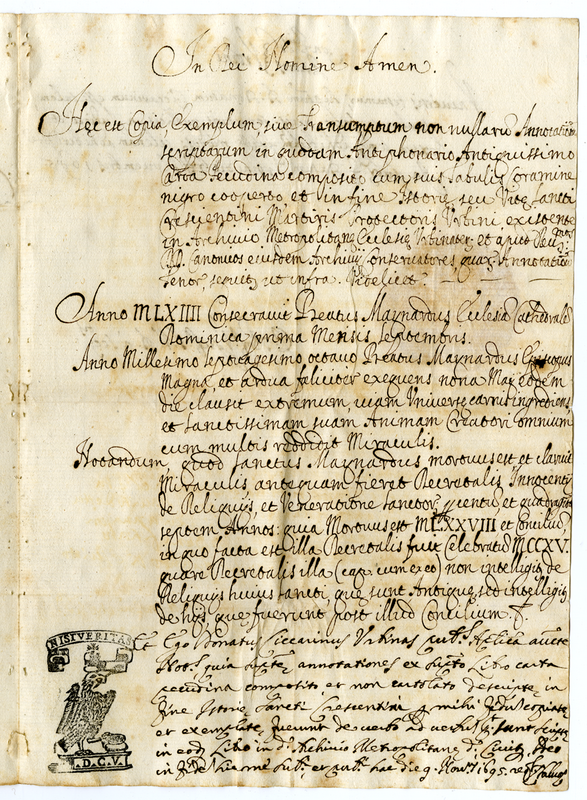 In Dei Nomine Amen.
Hęc est Copia, Exemplum, sive transumptum non nullarũ Annotationũ
scriptarum in quodam Antiphonario Antiquissimo
carta pecudina composito cum suis tabulis coramine
nigro cooperto et in fine Istorię, seu Vitę Sancti
Crescentini Martiris Protectoris Urbini existente
in Archivio Metropolitanę Ecclesię Urbinatẽ, et apud
DD. Canonicos eiusdem Archivij Conservatores, quarũ Annotationũ
tenor sequitur ut infra. Videlicet.
Anno MLXIIII Consecravit Beatus Maynardus Ecclesiã Cathedralẽ
Dominica prima Mensis septembris.
Anno Millesimo septuagesimo octavo Beatus Maynardus Episcopus
Magna, et ardua feliciter exequens nona Maij eodem
die clausit extremum, viam Universę carnis ingrediens,
et sanctissimam suam Animam Creatori omnium
cum multis reddidit Miraculis.
Notandum, quod Sanctus Maynardus mortuus est et claruit
Miraculis antequam fieret Decretalis Innocentij
de Reliquijs, et Veneratione Sanctorũ p centũ, et quadraginta
septem Annos: quia Mortuus est MLXXVIII et Conciliũ,
in quo facta est illa Decretalis fuit Celebratũ MCCXV.
quare Decretalis illa (cap. cum ex eo) non intelligit de
Reliquijs huius Sancti que sunt Antique, sed intelligit
de hijs, que fuerunt post illud Concilium
NISI VERITAS
Et Ego Donatus Ciccarinus Urbinas pub. Aplica aucte
Not. quia supte annotationes ex supto Libro carta
pecudina composito et non cartolato descripte, in
fine Istorię Sancti Crescentini p mihi
et exemplatę fuerunt de verbo ad verbum sunt
in eod. Libro in do Archivio Metropolitanę
in fidẽ hic me sub. et pub. hac die 9. Nov. 1695.
D.C.V.